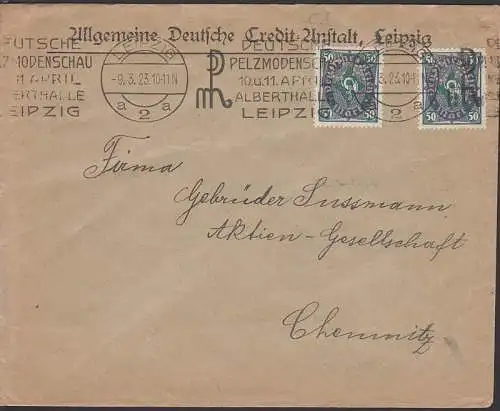 Allgemeine Deutsche Credit-Anstalt, Leipzig
DEUTSCHE
PELZMODENSCHAU
10.u.11. APRIL
ALBERTHALLE
LEIPZIG
LEIPZIG
-9.3.23.10-11N
a 2 a
DEUTSCHE
PELZMODENSCHAU
10.u.11.APRI
ALBERTHALL
LEIPZIG
50 50
50 50
Firma
Gebrüder Sussmann
Aktien-Gesellschaft
Chemnitz